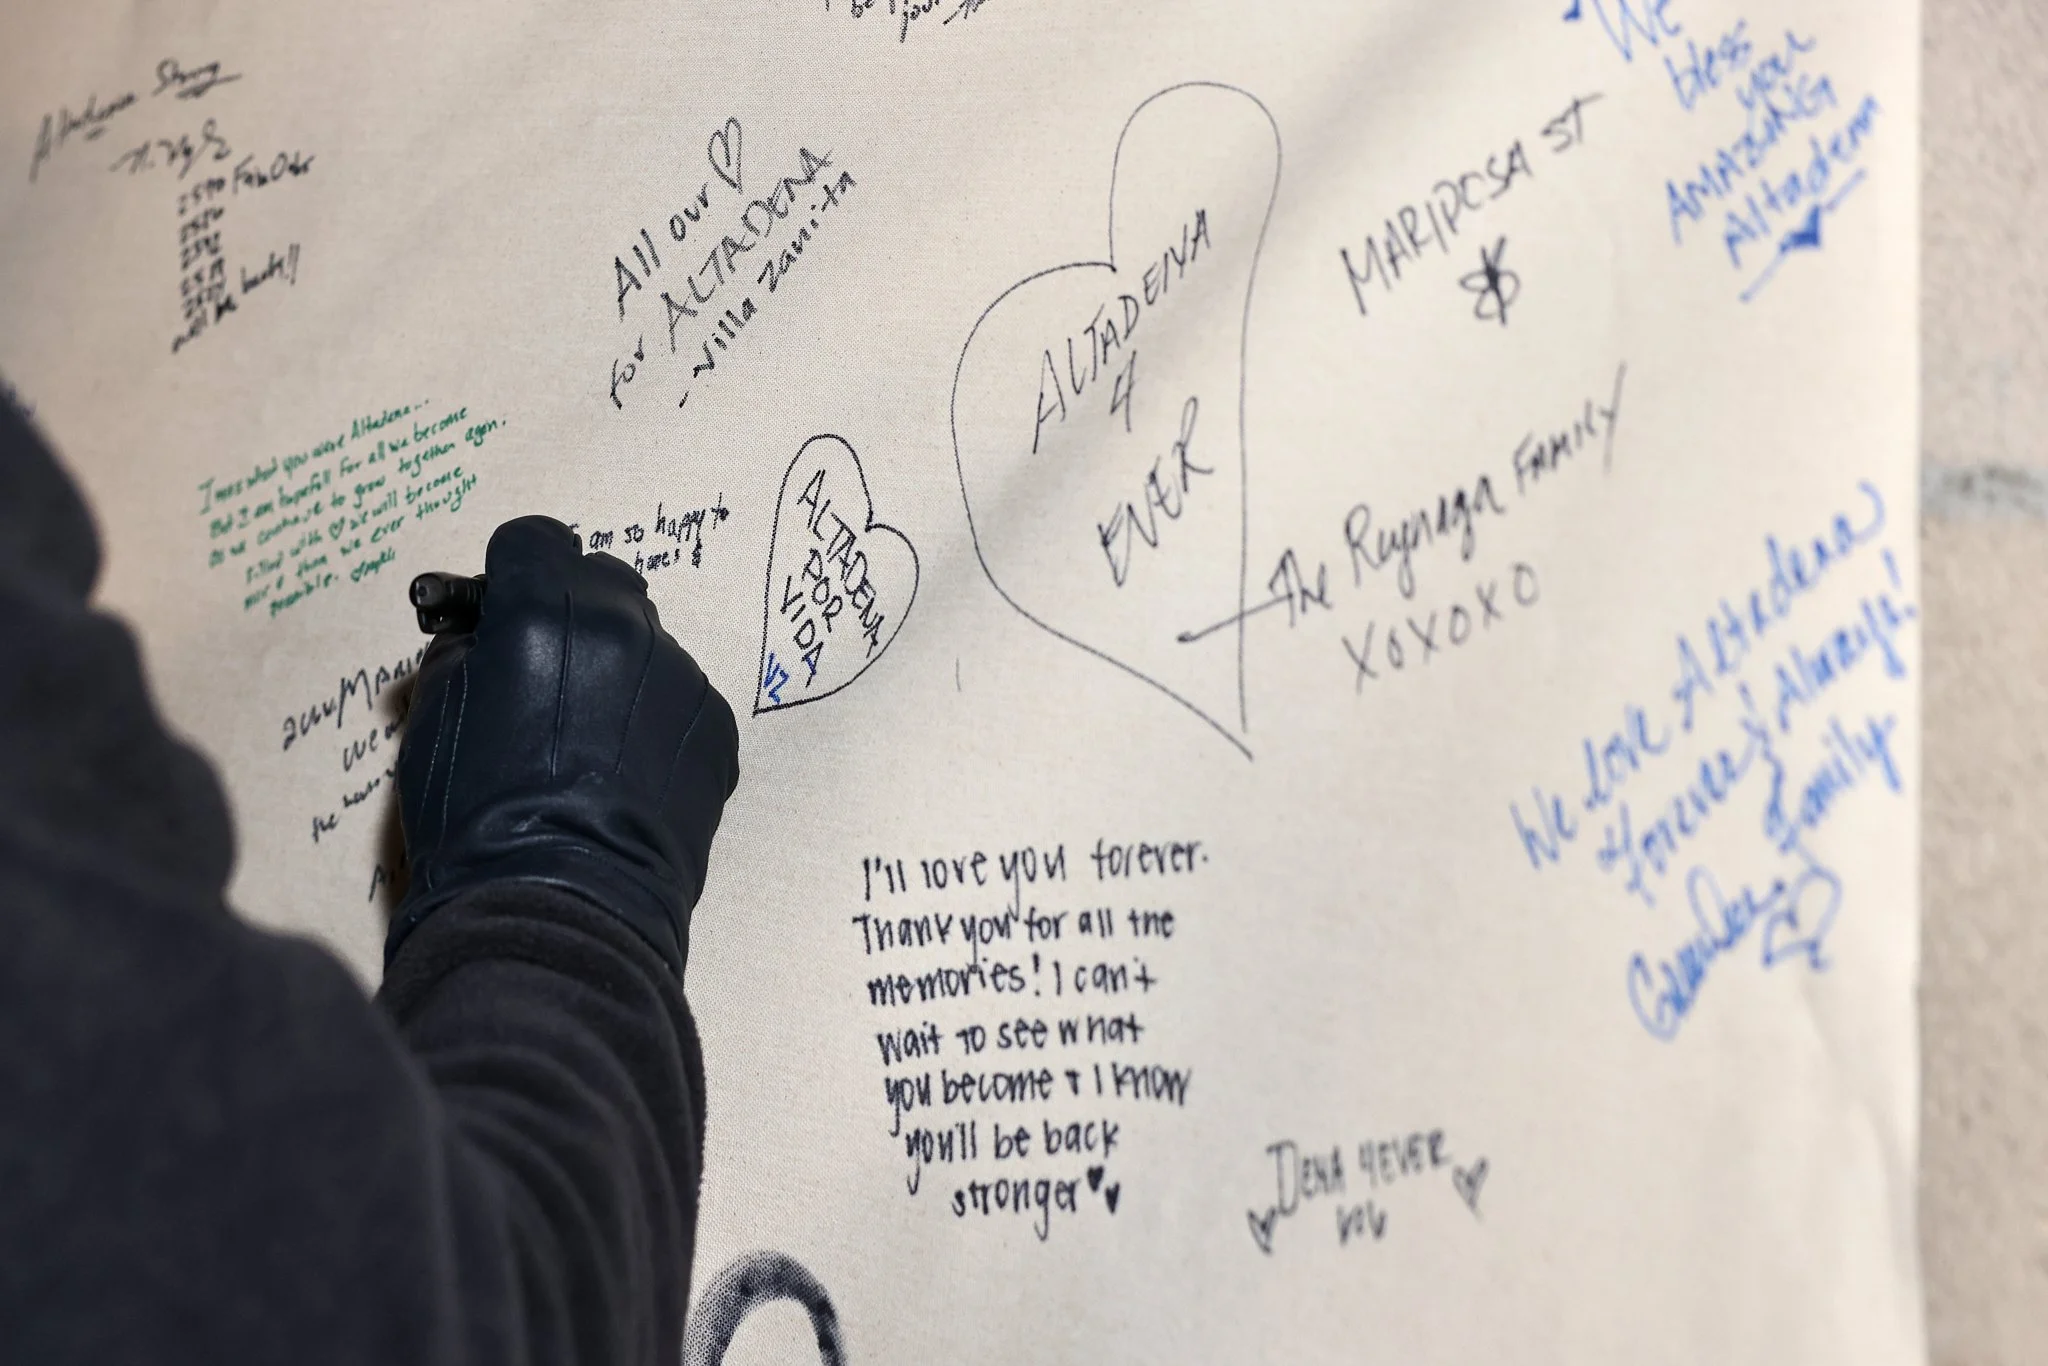 Altadena Strong
2590 Fair Oaks
will be back!!
All our
for ALTADENA
- Villa Zanita
ALTADENA
4
EVER
MARIPOSA ST
The Reynaga FAMILY
XOXOXO
We
bless
you
AMAZING
Altadena
I miss what you were Altadena...
But I am hopefull for all we become
as we continue to grow together again.
filled with we will become
more than we ever thought
possible.
am so happy to
ALTADENA
POR
VIDA
We
We love Altadena
Forever & Always!
Family
I'll love you forever.
Thank you for all the
memories! I can't
wait to see what
you become + I know
you'll be back
stronger
DENA 4EVER